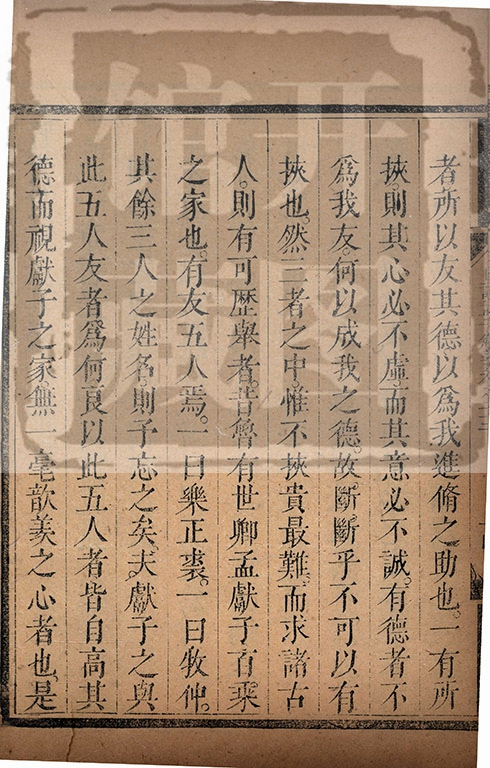 者所以友其德以爲我進脩之助也。一有所
挾。則其心必不虛。而其意必不誠。有德者不
爲我友。何以成我之德。故斷斷乎不可以有
挾也。然三者之中。惟不挾貴最難。而求諸古
人。則有可歷舉者。昔魯有世卿孟獻子百乘
之家也。有友五人焉。一曰樂正裘。一曰牧仲。
其餘三人之姓名。則予忘之矣。夫獻子之與
此五人友者爲何。良以此五人者皆自高其
德而視獻子之家。無一毫歆羨之心者也。是